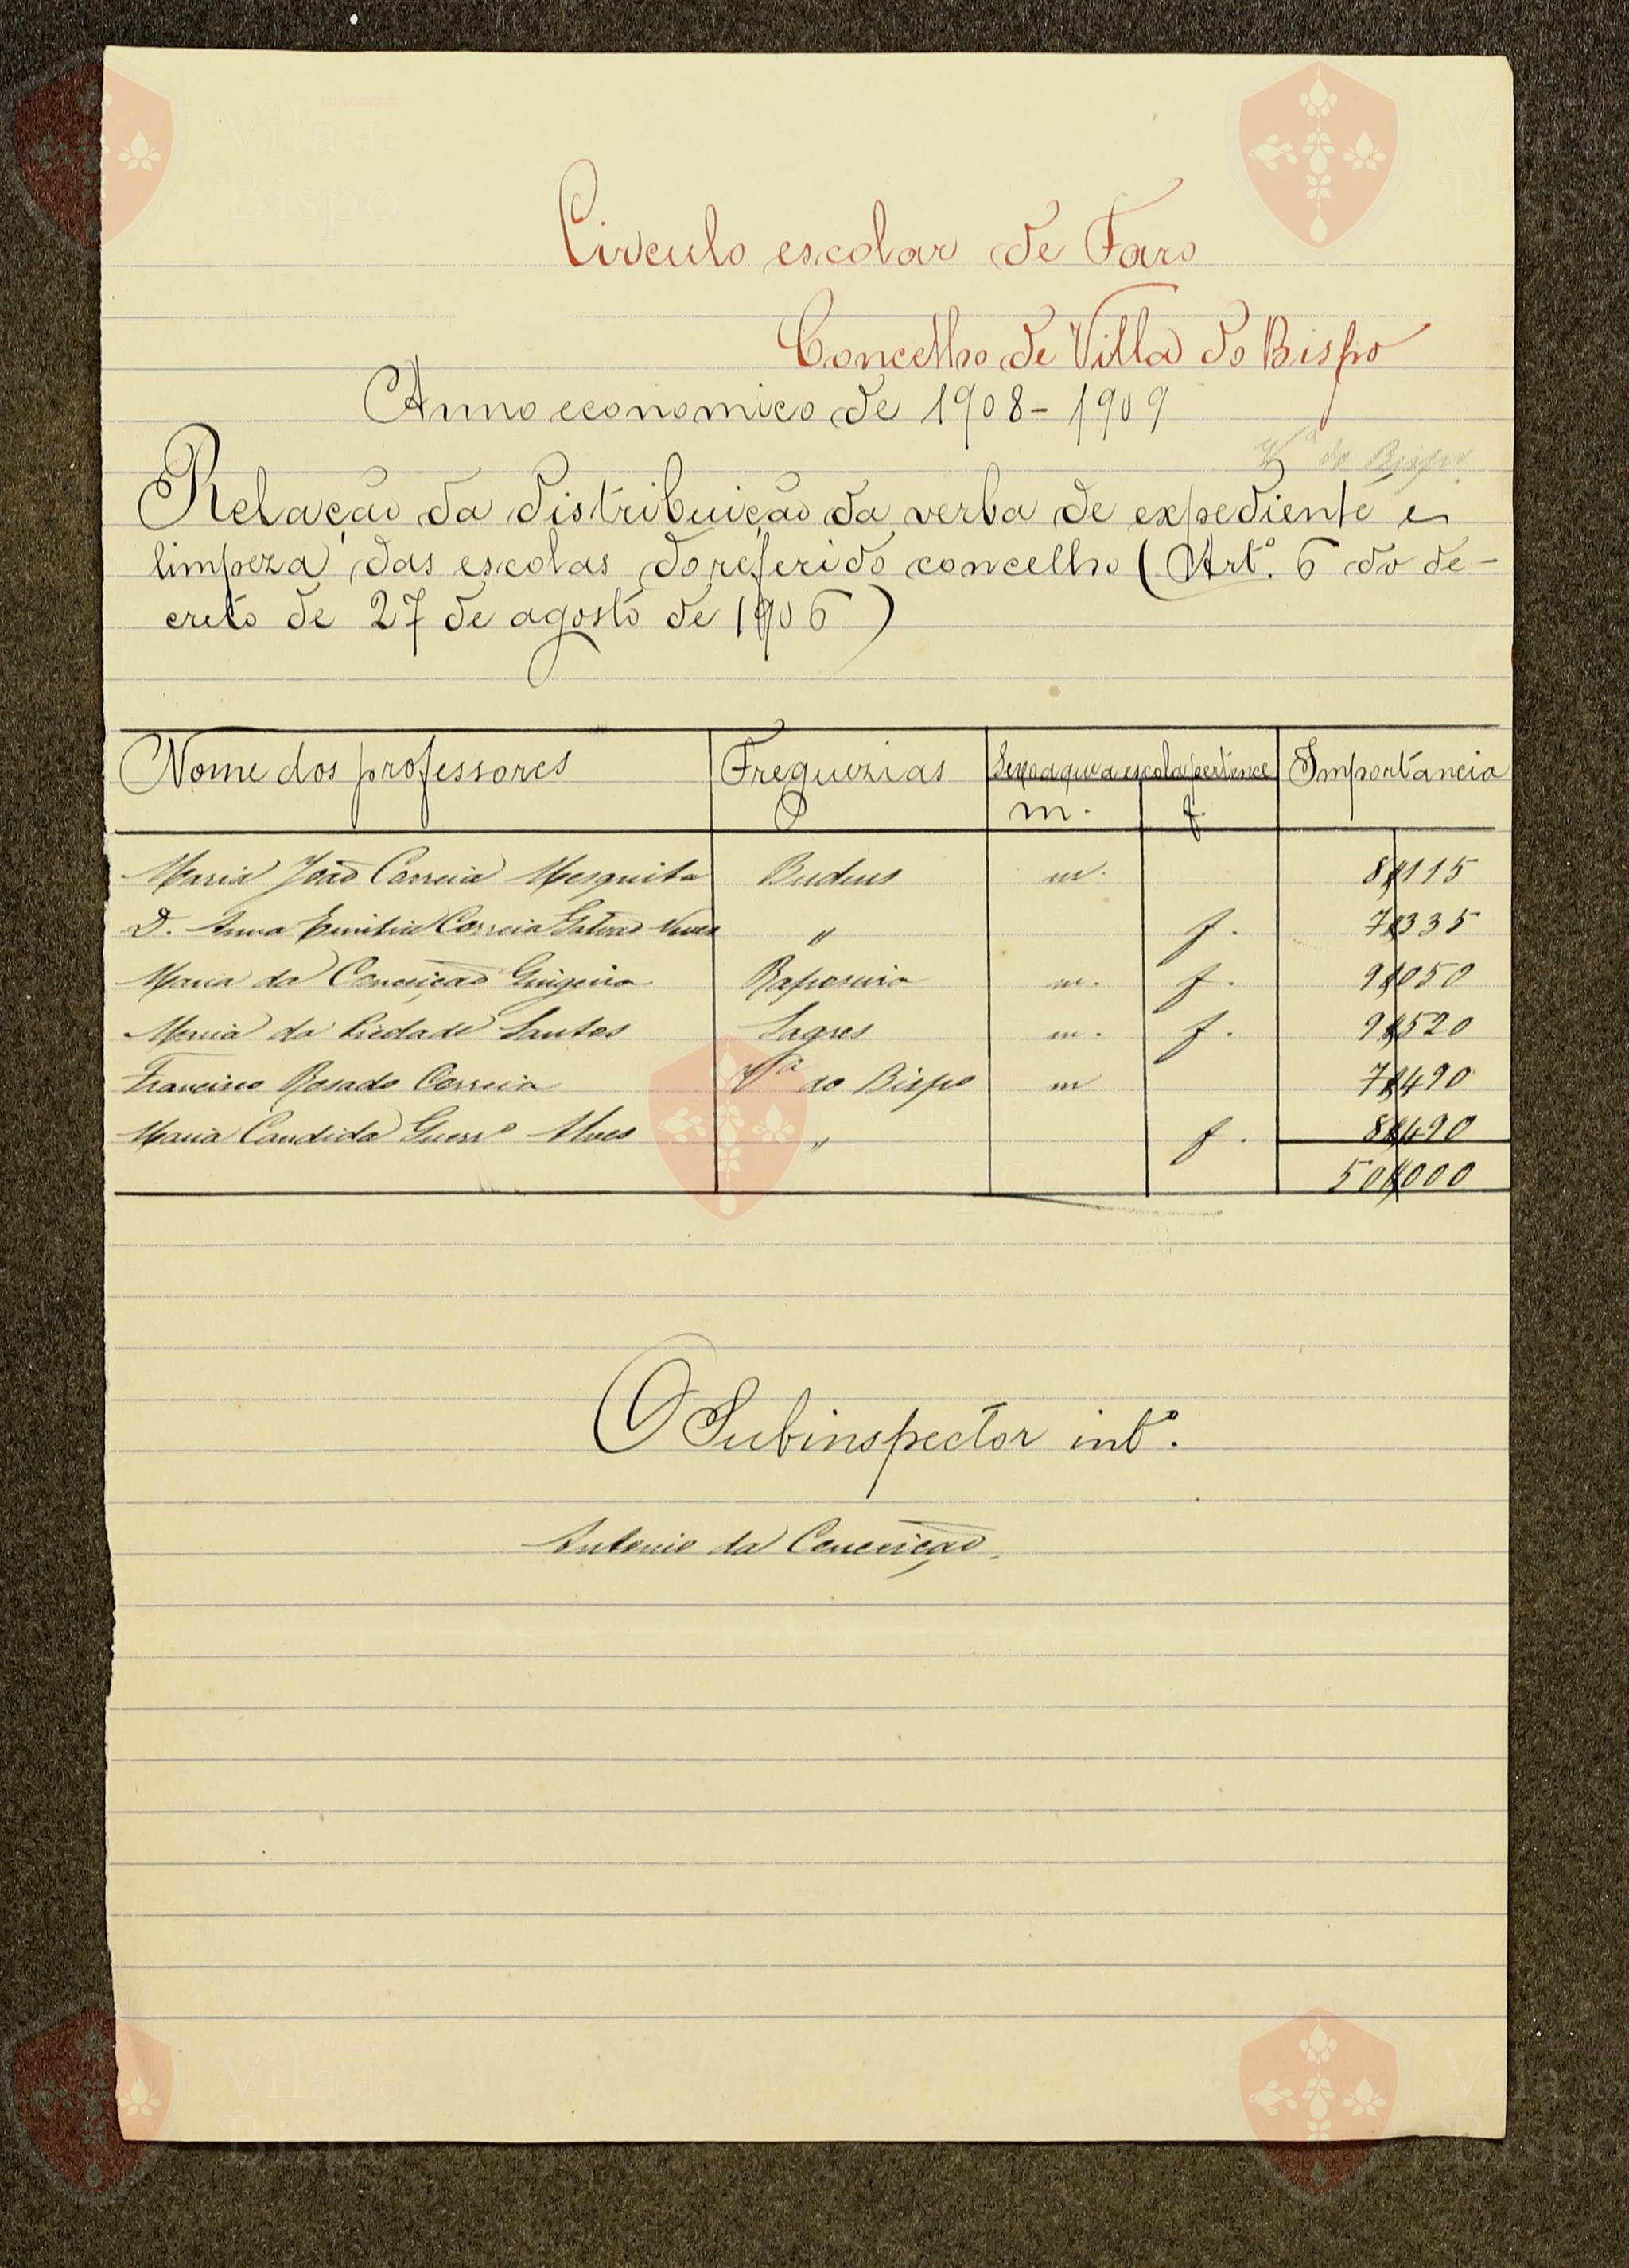 Circulo escolar de Faro
Concelho de Villa do Bispo
Anno economico de 1908-1909
Vª do Bispo
Relação da distribuição da verba de expediente e
limpeza das escolas do referido concelho (Artº. 6 do de-
creto de 27 de agosto de 1906)
Nome dos professores Freguezias Sexo a que a escola pertence Importancia
m. f.
Maria João Correia Mesquita Budens m. 8$115
D. Anna Emilia Correia Galvão Nunes " f. 7$335
Maria da Conceição Raposeira m. f. 9$050
Maria da Piedade Santos Sagres m. f. 9$520
Francisco Rosado Correia Vª do Bispo m 7$490
Maria Candida Guerrº Alves " f. 8$490
50$000
O Subinspector intº.
Antonio da Conceição.
Vila do
Bispo